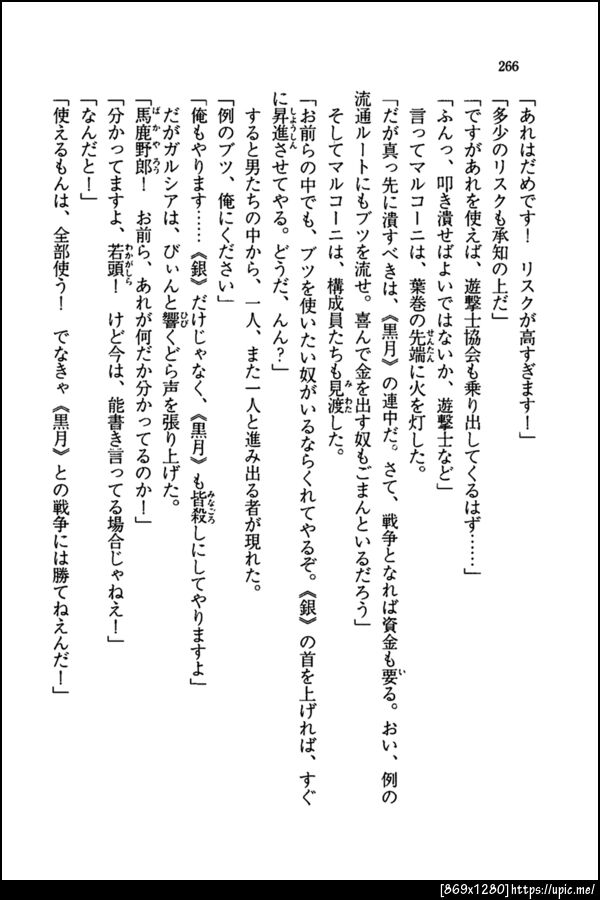 266
「あれはだめです！　リスクが高すぎます！」
「多少のリスクも承知の上だ」
「ですがあれを使えば、遊撃士協会も乗り出してくるはず……」
「ふんっ、叩き潰せばよいではないか、遊撃士など」
言ってマルコーニは、葉巻の先端に火を灯した。
「だが真っ先に潰すべきは、《黒月》の連中だ。さて、戦争となれば資金も要る。おい、例の
流通ルートにもブツを流せ。喜んで金を出す奴もごまんといるだろう」
そしてマルコーニは、構成員たちも見渡した。
「お前らの中でも、ブツを使いたい奴がいるならくれてやるぞ。《銀》の首を上げれば、すぐ
に昇進させてやる。どうだ、んん？」
すると男たちの中から、一人、また一人と進み出る者が現れた。
「例のブツ、俺にください」
「俺もやります……《銀》だけじゃなく、《黒月》も皆殺しにしてやりますよ」
だがガルシアは、びぃんと響くどら声を張り上げた。
「馬鹿野郎！　お前ら、あれが何だか分かってるのか！」
「分かってますよ、若頭！　けど今は、能書き言ってる場合じゃねえ！」
「なんだと！」
「使えるもんは、全部使う！　でなきゃ《黒月》との戦争には勝てねえんだ！」
[869x1280]https://upic.me/